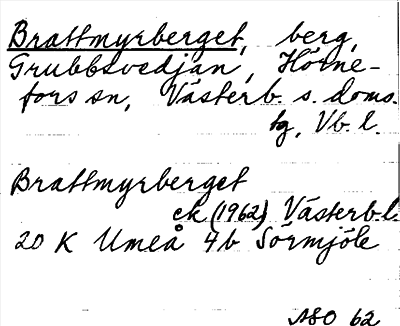 Brattmyrberget, berg,
Grubbsvedjan, Hörne-
fors sn, Västerb. s. doms.
tg, Vb. l.
Brattmyrberget
ek (1962) Västerb. l.
20 K Umeå 4b Sörmjöle
ASO 62